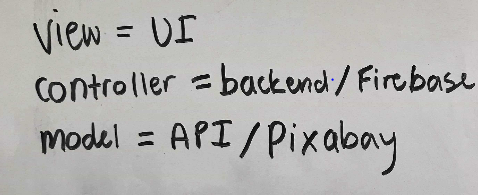 view = UI
controller = backend/Firebase
model = API/Pixabay